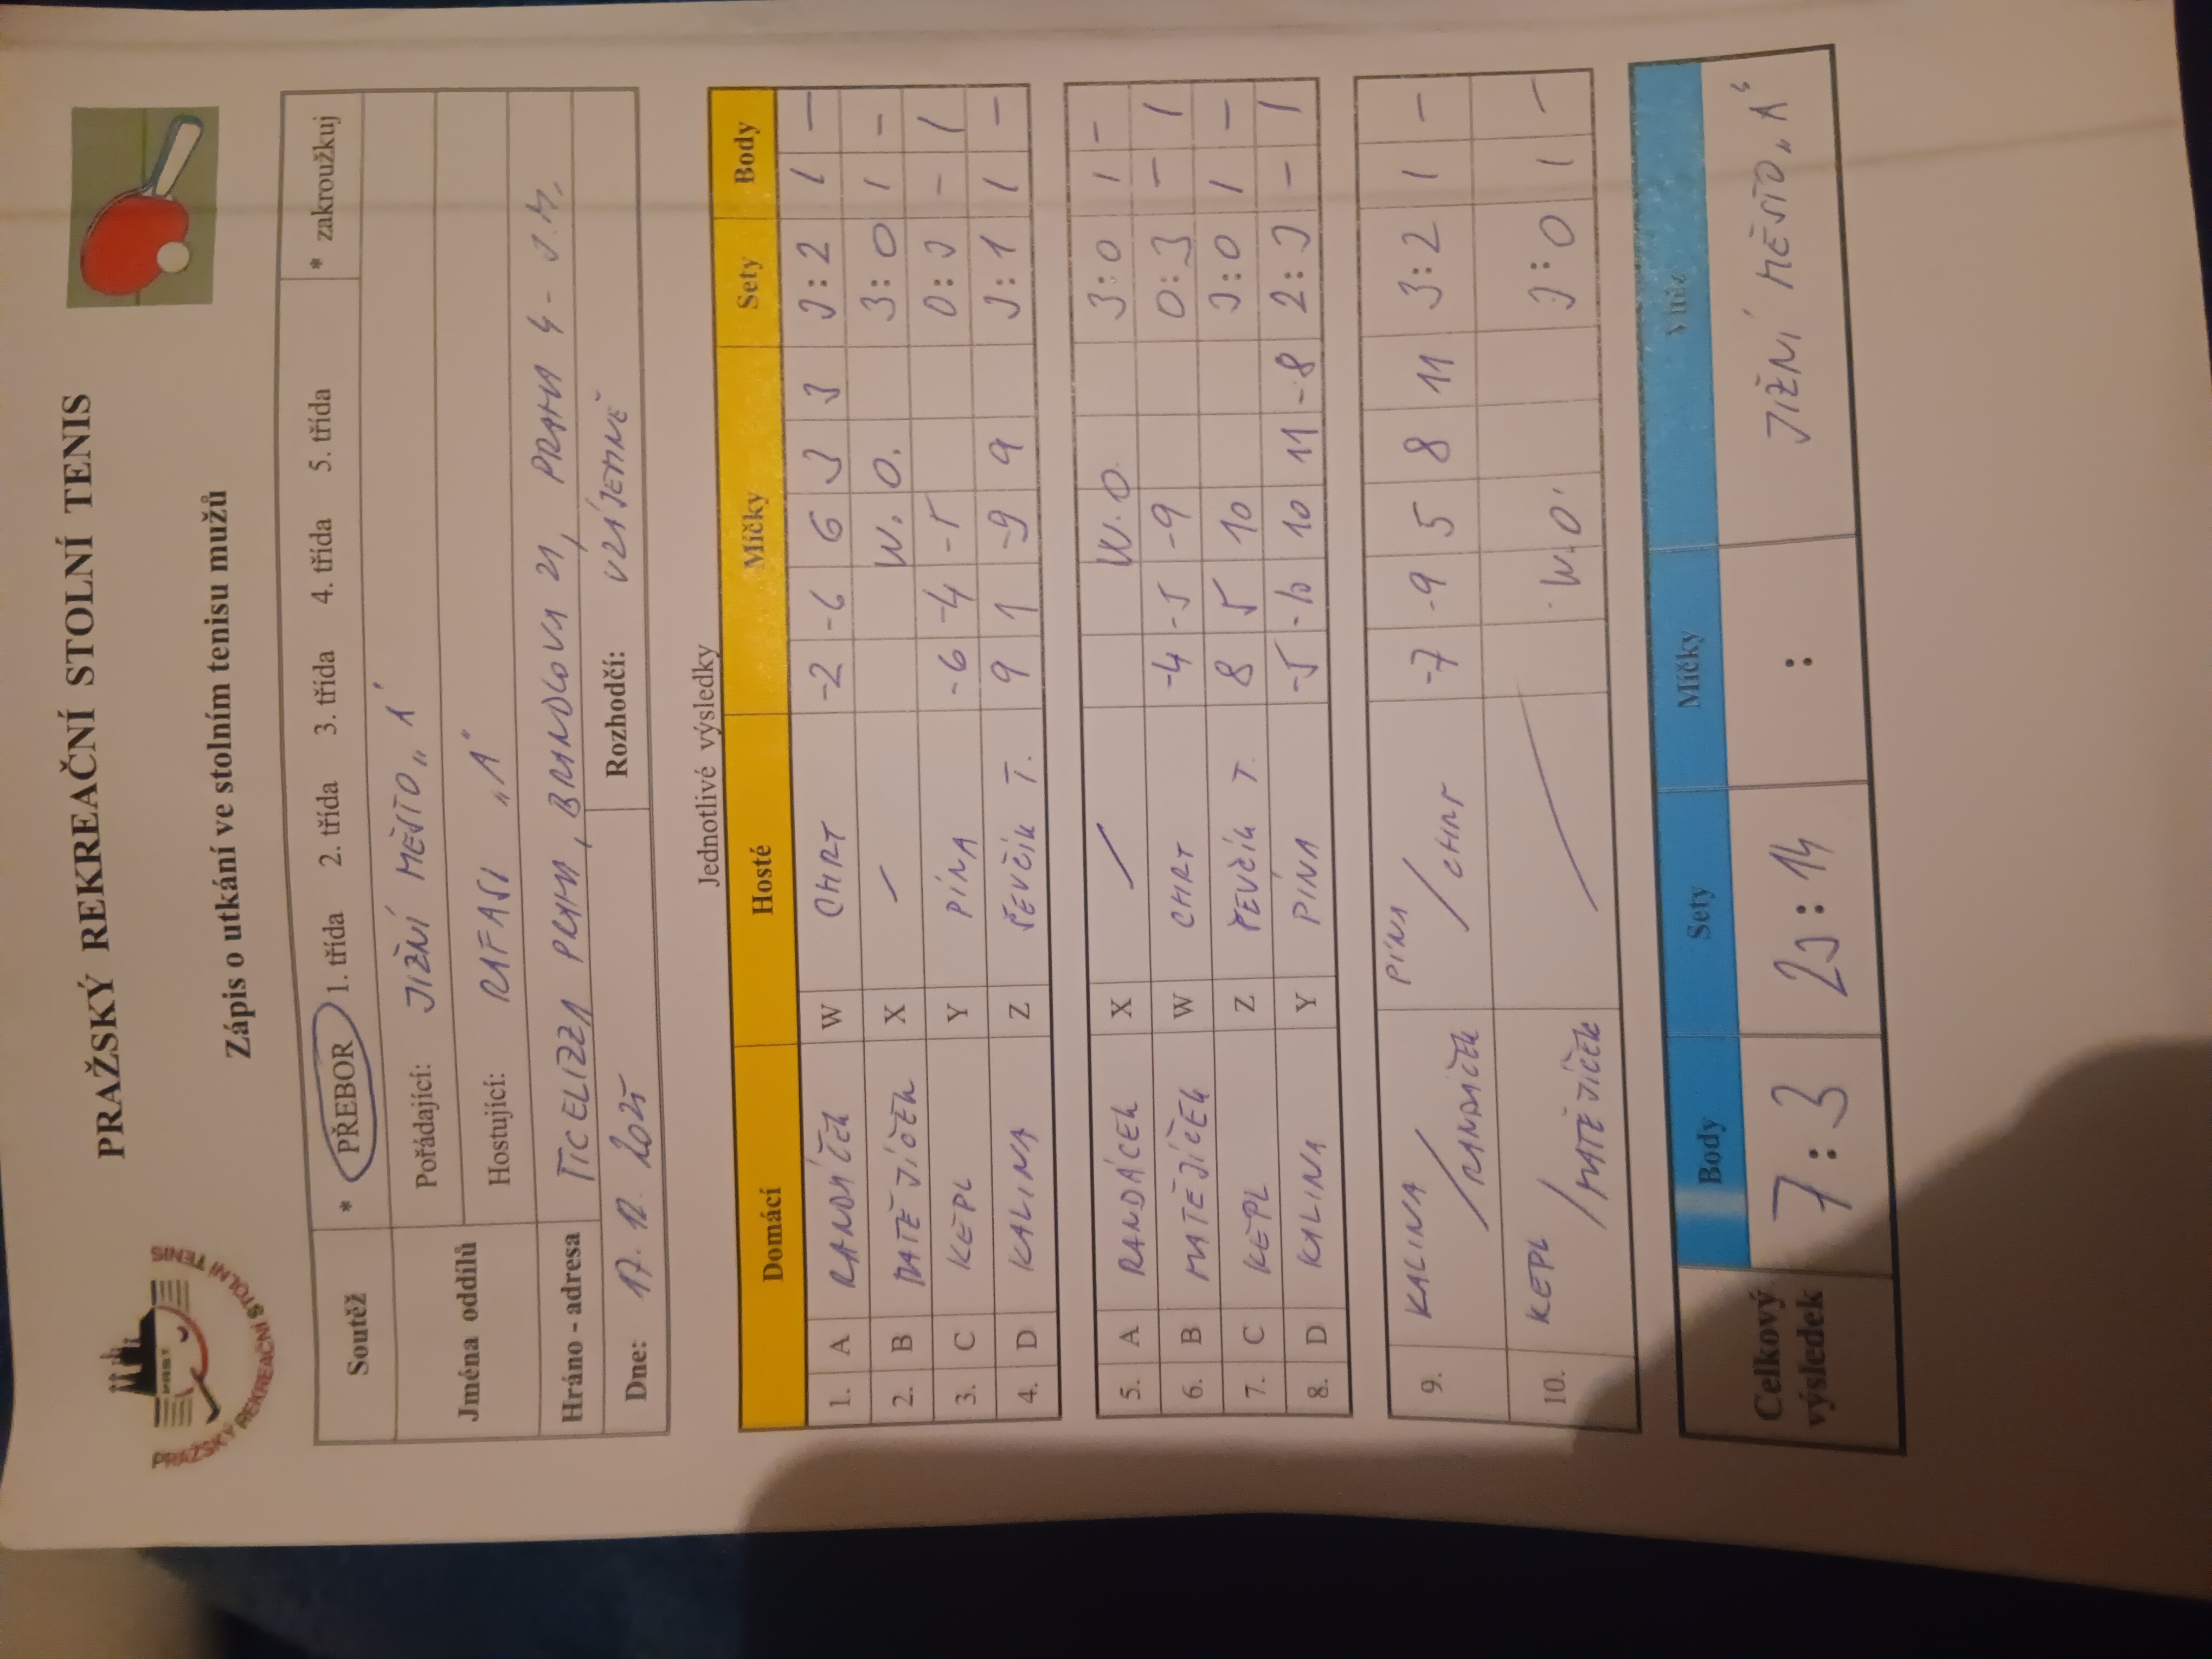 PRAŽSKÝ REKREAČNÍ STOLNÍ TENIS
PRAŽSKÝ REKREAČNÍ STOLNÍ TENIS
Zápis o utkání ve stolním tenisu mužů
Soutěž * PŘEBOR 1. třída 2. třída 3. třída 4. třída 5. třída * zakroužkuj
Jména oddílů Pořádající: JIŽNÍ MĚSTO „A"
Hostující: RAFASI „A"
Hráno - adresa PRAHA, BRANDLOVA 21, PRAHA 4 - J.M.
Dne: 17. 12. 2025 Rozhodčí: VZÁJEMNĚ
Jednotlivé výsledky
Domácí Hosté Míčky Sety Body
1. A RANDÁČEK W CHRT -2 -6 6 3 3 3:2 1 -
2. B MATĚJÍČEK X - W.O. 3:0 1 -
3. C KEPL Y PÍNA -6 -4 -5 0:3 - 1
4. D KALINA Z ŠEVČÍK T. 9 1 -9 9 3:1 1 -
5. A RANDÁČEK X - W.O. 3:0 1 -
6. B MATĚJÍČEK W CHRT -4 -5 -9 0:3 - 1
7. C KEPL Z ŠEVČÍK T. 8 5 10 3:0 1 -
8. D KALINA Y PÍNA -5 -10 10 11 -8 2:3 - 1
9. KALINA / RANDÁČEK PÍNA / CHRT -7 -9 5 8 11 3:2 1 -
10. KEPL / MATĚJÍČEK W.O. 3:0 1 -
Celkový výsledek Body Sety Míčky Vítěz
7:3 23:14 : JIŽNÍ MĚSTO „A"